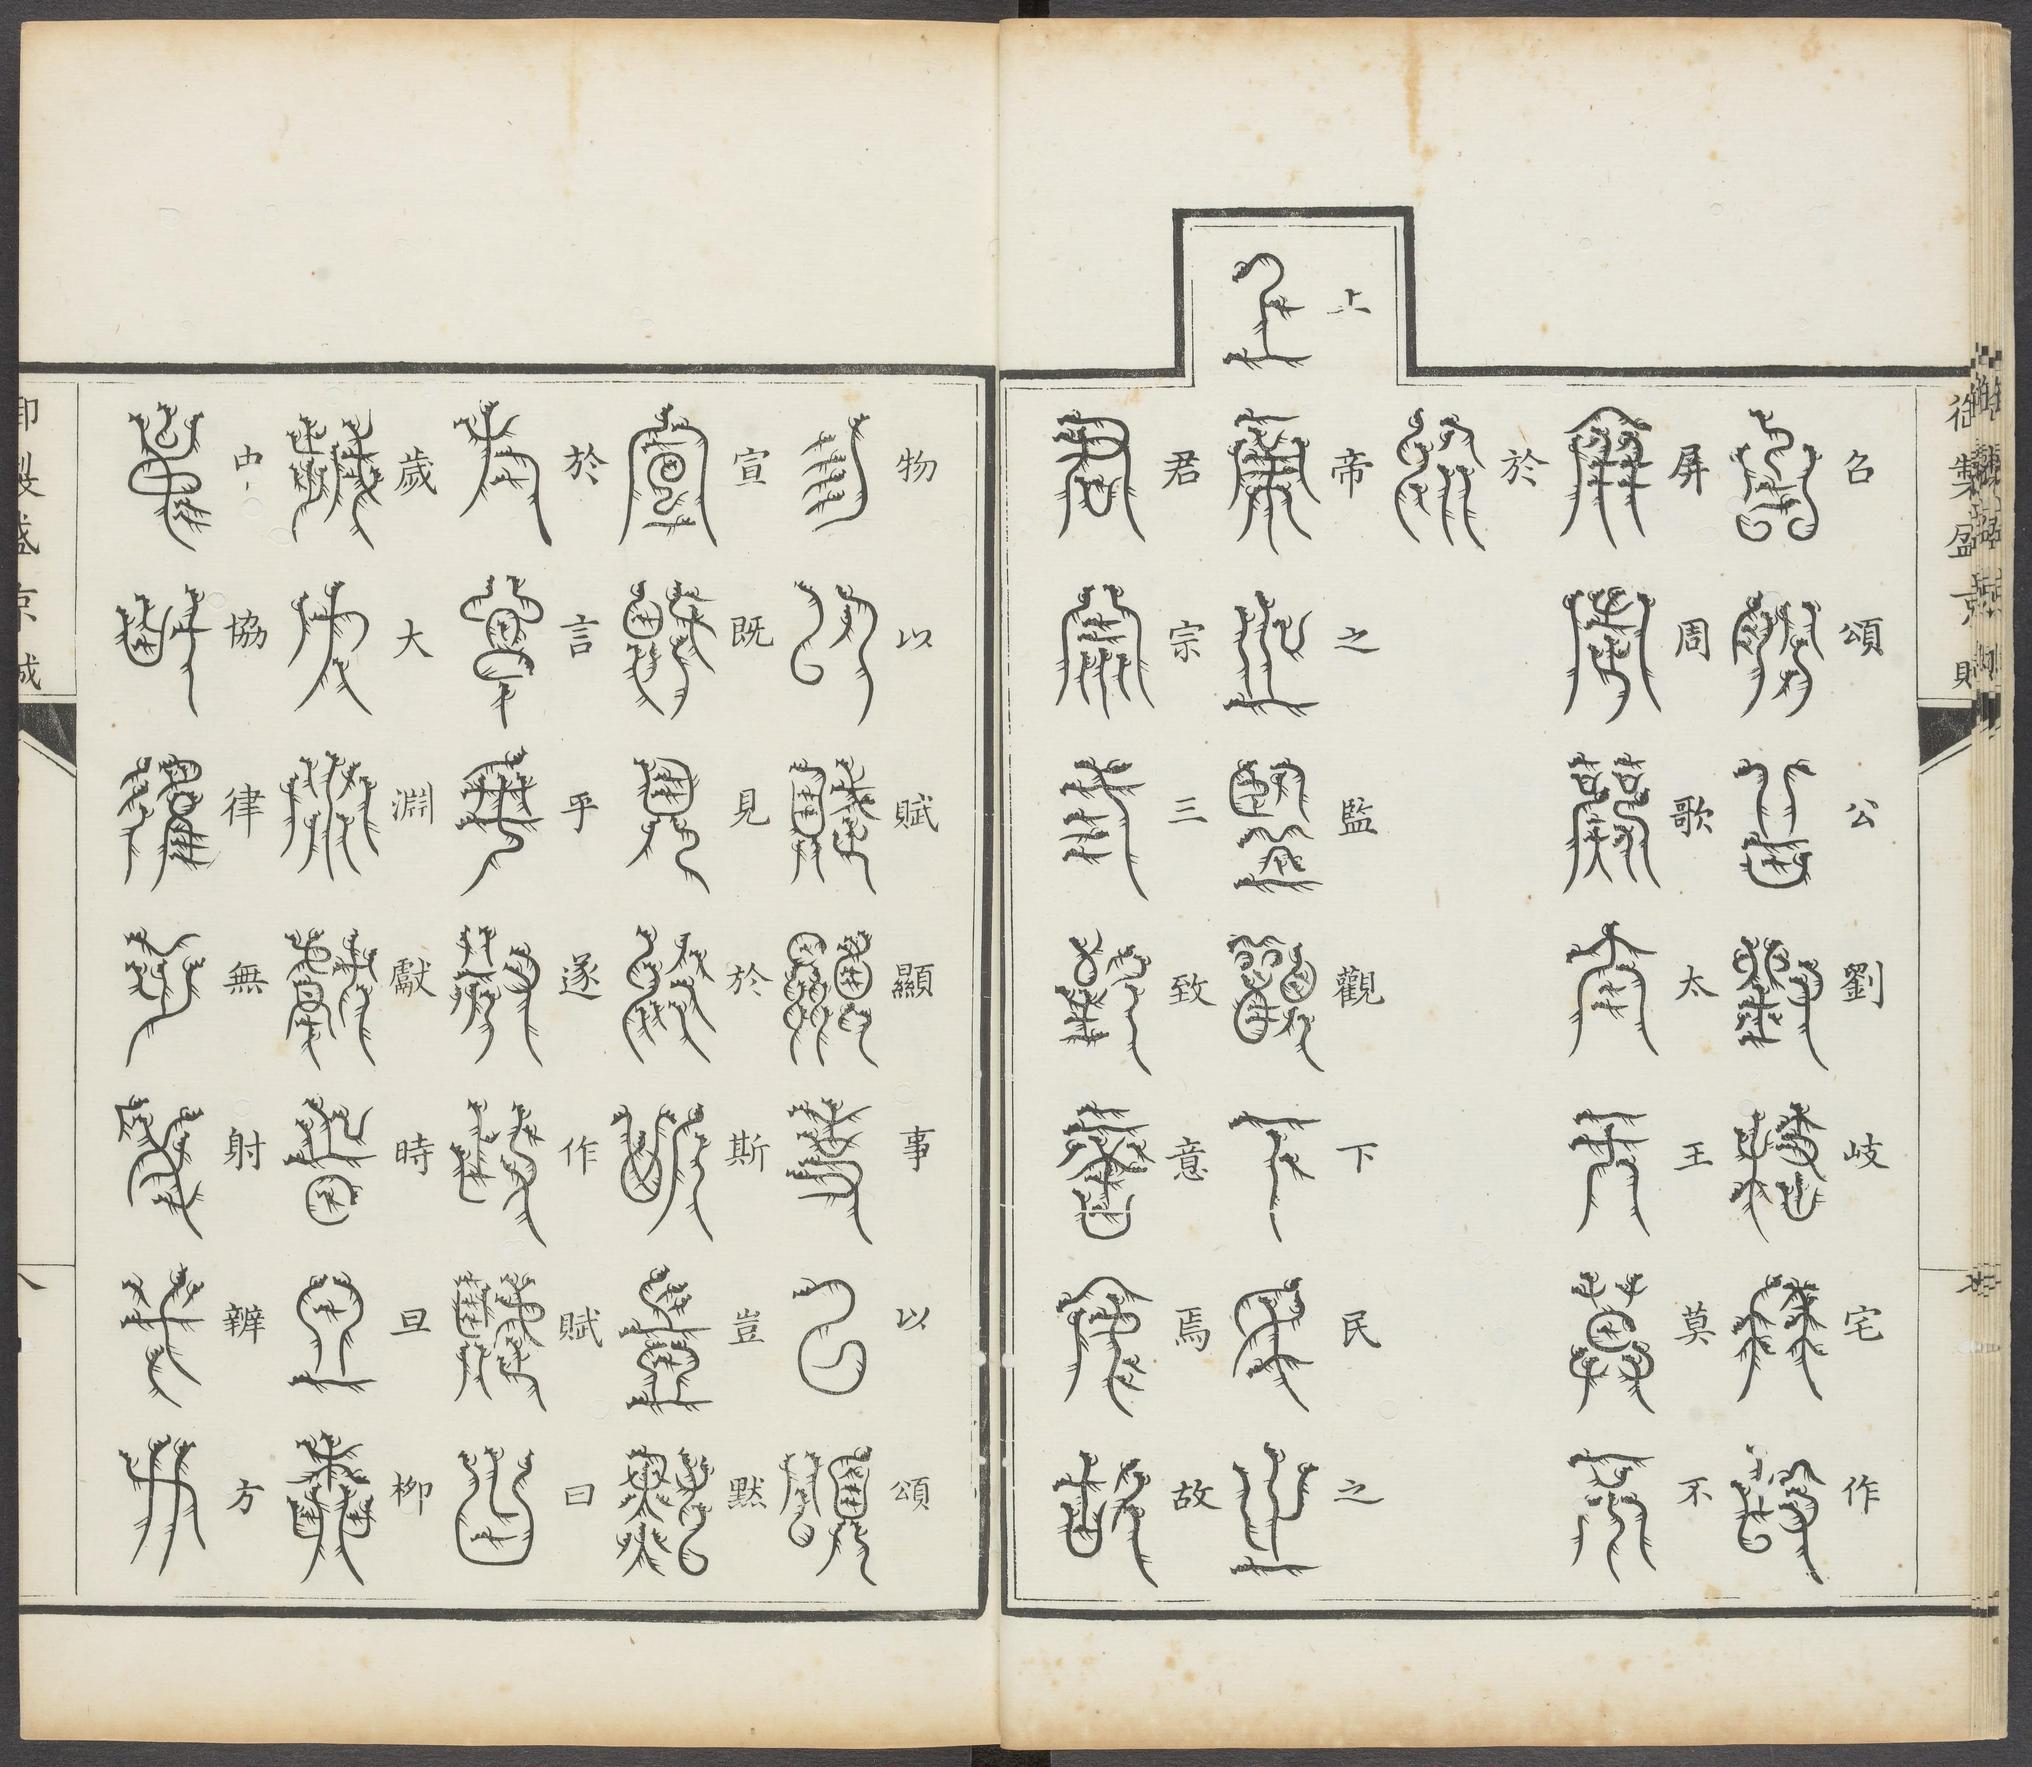 召頌公劉岐宅作
屏周歌太王莫不
於
上帝之監觀下民之
君宗三致意焉故
物以賦顯事以頌
宣既見於斯豈默
於言乎遂作賦曰
歲大淵獻時旦柳
中協律無射辨方